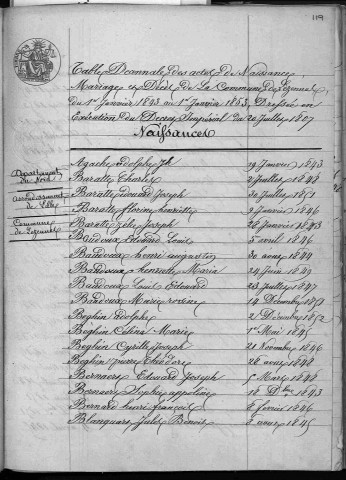 119
Table Décennale des actes de Naissance,
Mariage et Décès de la Commune de Lezennes
du 1er Janvier 1843 au 1er Janvier 1853, Dressée en
Exécution du Décret Impérial du 20 Juillet 1807
Naissances
Département
du Nord
arrondissement
de Lille
Commune
de Lezennes
Agache adolphe 19 Janvier 1843
Baratte Charles 2 Juillet 1848
Baratte édouard Joseph 30 Juillet 1851
Baratte florine henriette 9 Janvier 1846
Baratte Joseph 26 Janvier 1843
Baudoux Edouard Louis 5 avril 1846
Baudoux henri augustin 30 aout 1844
Baudoux henriette Maria 24 Juin 1849
Baudoux Louis Edouard 23 Juillet 1847
Baudoux Marie rosine 14 Décembre
Beghin adolphe 2 Décembre 1852
Beghin Célina Marie 1er Mai 1845
Beghin Cyrille Joseph 21 Novembre 1846
Beghin pierre théodore 26 aout 1848
Bernaert Edouard Joseph 5 Mars 1848
Bernaert Sophie appoline 18 Xbre 1843
Bernard henri françois 8 février 1846
Blanquart Jules Benoit 8 aout 1845